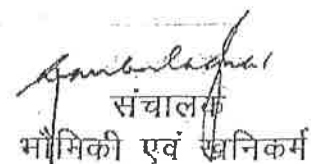 संचालक
भौमिकी एवं खनिकर्म